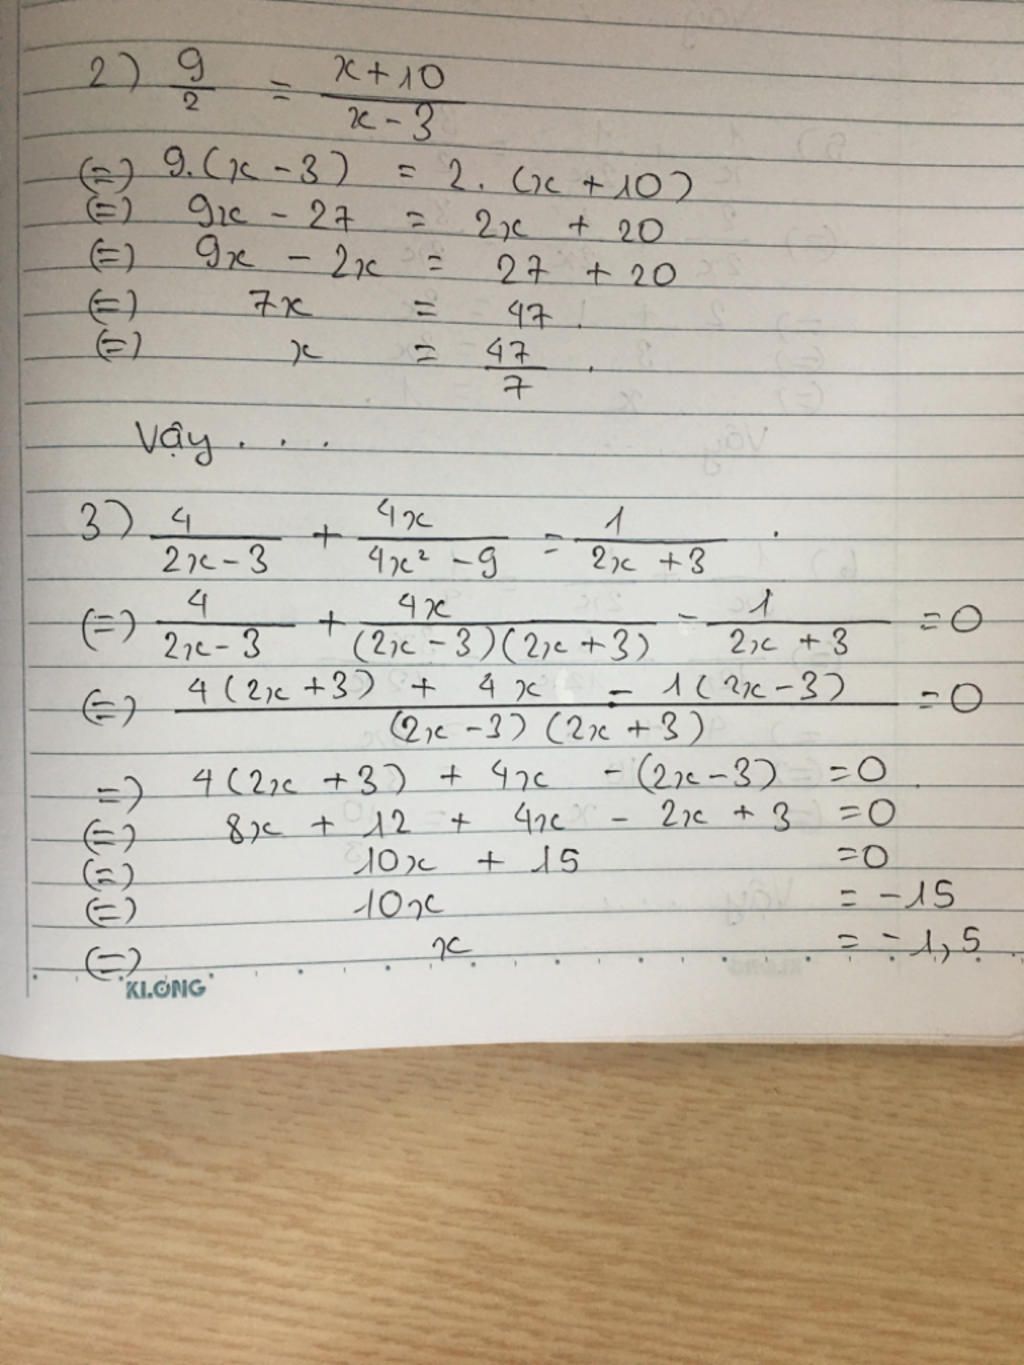 2) 9/2 = (x+10)/(x-3)
(=) 9.(x-3) = 2.(x+10)
(=) 9x - 27 = 2x + 20
(=) 9x - 2x = 27 + 20
(=) 7x = 47.
(=) x = 47/7.
Vậy ....
3) 4/(2x-3) + 4x/(4x²-9) = 1/(2x+3).
(=) 4/(2x-3) + 4x/((2x-3)(2x+3)) - 1/(2x+3) = 0
(=) (4(2x+3) + 4x - 1(2x-3))/((2x-3)(2x+3)) = 0
=) 4(2x+3) + 4x - (2x-3) = 0
(=) 8x + 12 + 4x - 2x + 3 = 0
(=) 10x + 15 = 0
(=) 10x = -15
(=) x = -1,5
KLONG